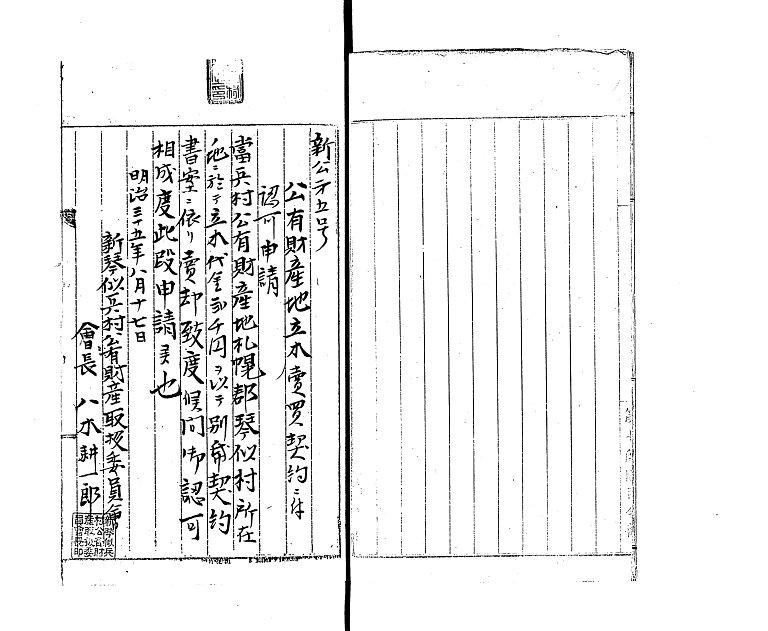 新公第五号
公有財産地立木賣買契約ニ付
認可申請
當兵村公有財産地札幌郡琴似村所在
地ニ於テ立木代金弐千円ヲ以テ別紙契約
書案ニ依リ賣却致度候間御認可
相成度此段申請候也
明治三十五年八月十七日
新琴似兵村公有財産取扱委員會
會長 八木耕一郎